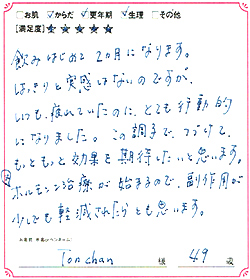 □お肌 ☑からだ ☑更年期 ☑生理 □その他
[満足度]★★★★★
飲みはじめて2ヵ月になります。
はっきりと実感はないのですが、
いつも、疲れていたのに、とても行動的
になりました。この調子で、つづけて、
もっともっと効果を期待したいと思います。
又ホルモン治療が始まるので、副作用が
少しでも軽減されたらとも思います。
お名前 (ペンネーム)
Tonchan 様 49 歳